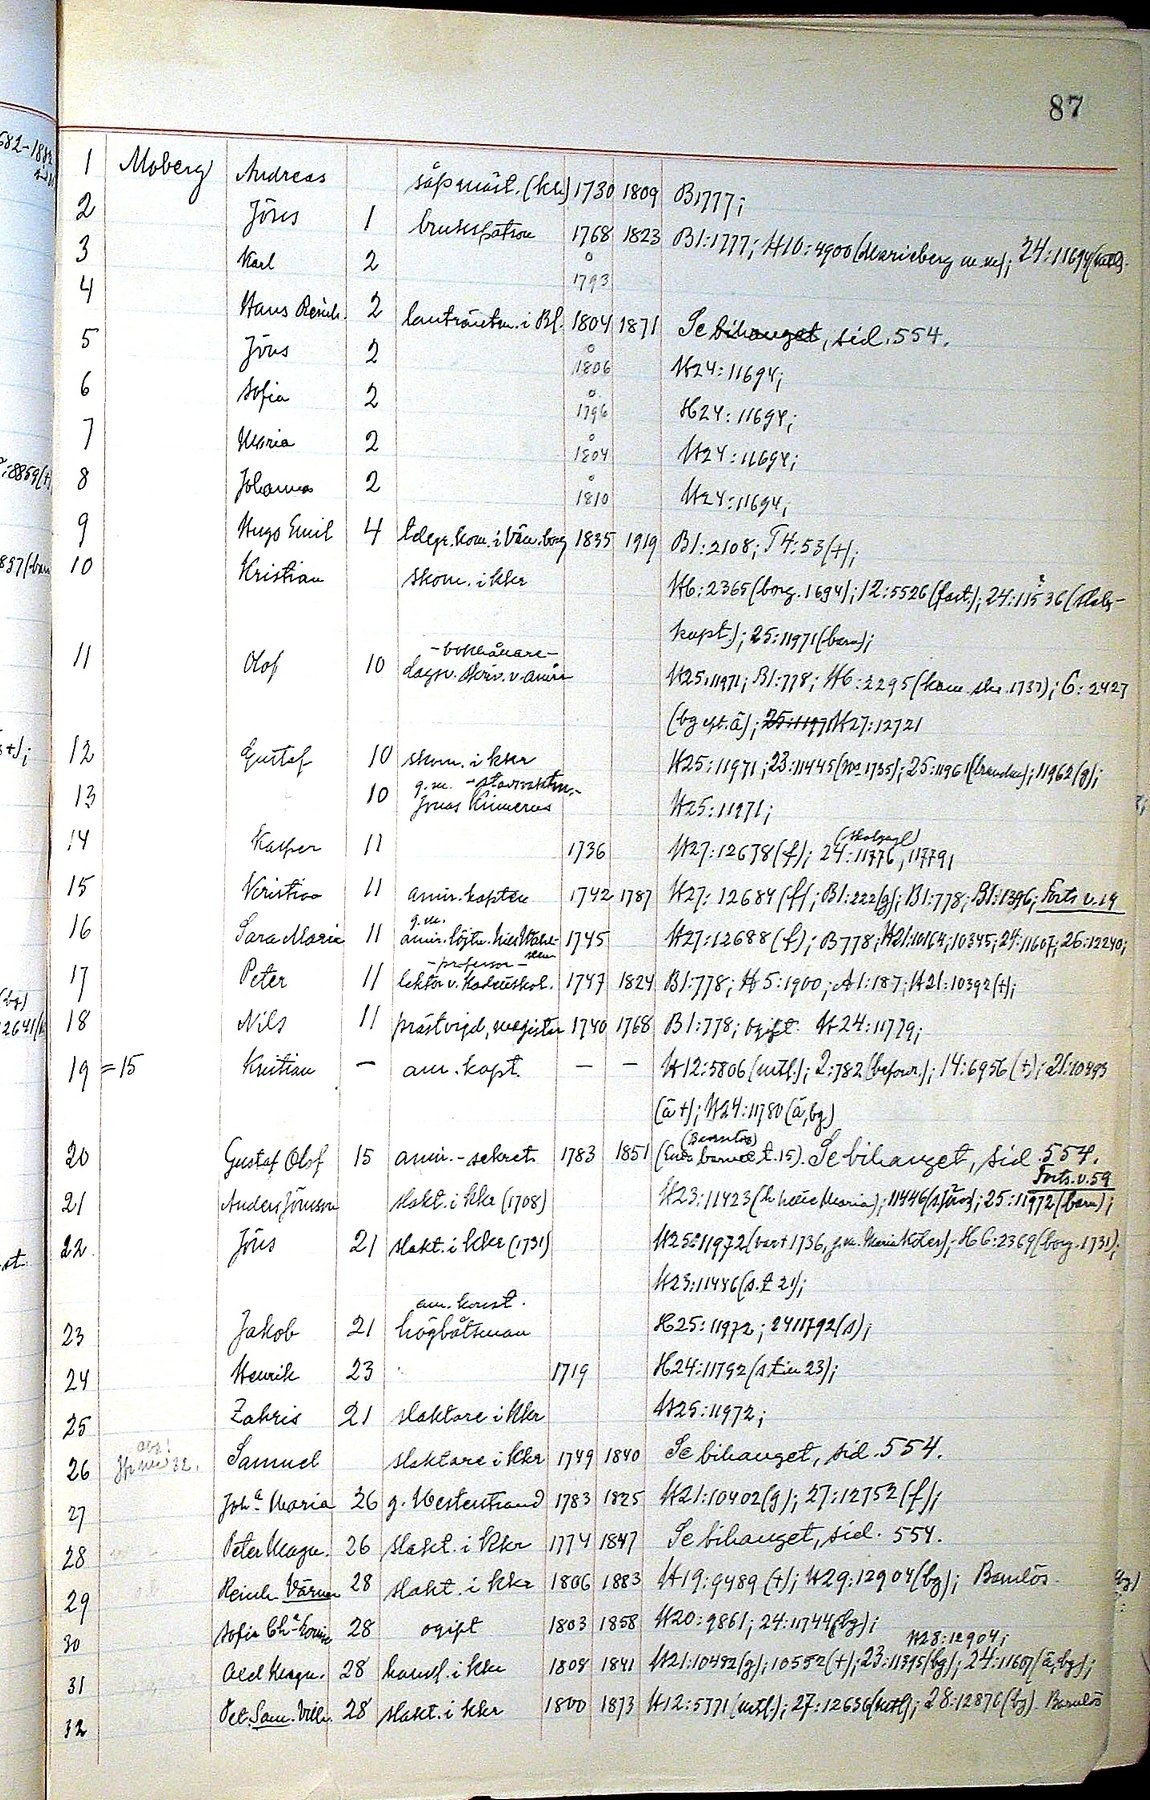 87
1 Moberg Andreas såpmäst. (kkr) 1730 1809 B1777;
2 Jöns 1 brukspatron 1768 1823 B1:1777; H10:4900 (Marieberg m.m.); 24:11694
3 Karl 2 o 1793
4 Hans Reinh. 2 lanträntm. i Bl. 1804 1871 Se bihanget, sid. 554.
5 Jöns 2 o 1806 H24:11694;
6 Sofia 2 o 1796 H24:11694;
7 Maria 2 o 1804 H24:11694;
8 Johanna 2 o 1810 H24:11694;
9 Hugo Emil 4 telegr. kom. i Vän.borg 1835 1919 B1:2108; T4:53 (+);
10 Kristian skom. i kkr H6:2365 (borg. 1694); 12:5526 (fast.); 24:11536
kapt.); 25:11971 (barn);
-bokhållare-
11 Olof 10 dagsv. skriv. v. amir H25:11971; B1:778; H6:2295 (kam. skr. 1737); 6:2427
(bg eft. ä); 25:11971 H27:12721
12 Gustaf 10 skom. i kkr H25:11971; 23:11445 (no 1735); 25:11961 (branden); 11962 (g);
g.m.
13 10 Jonas Kimerus H25:11971;
14 Kasper 11 1736 H27:12678 (f); 24:11776, 11779;
15 Kristian 11 amir. kapten 1742 1787 H27:12684 (f); B1:222 (g); B1:778; B1:1396; Forts v. 19
g.m.
16 Sara Maria 11 amir. löjtn. 1745 H27:12688 (f); B778; H21:10164; 10345; 24:11607; 26:12240;
-professor-
17 Peter 11 lektor v. Kadettskol. 1747 1824 B1:778; H5:1900; A1:187; H21:10392 (+);
18 Nils 11 prästvigd, magister 1740 1768 B1:778; ogift H24:11779;
19 = 15 Kristian — am. kapt. — — H12:5806 (mtl.); 2:782 (befour.); 14:6956 (+); 21:10493
(ä +); H24:11780 (ä, bg)
20 Gustaf Olof 15 amir.-sekret. 1783 1851 (Enda barnet t. 15). Se bihanget, sid. 554.
Forts. v. 59
21 Anders Jönsson slakt. i kkr (1708) H23:11423; 11446; 25:11972 (barn);
22 Jöns 21 slakt. i kkr (1731) H25:11972; H6:2369 (borg. 1731);
H23:11446 (s. t. 21);
am. konst.
23 Jakob 21 högbåtsman H25:11972; 24:11792 (s);
24 Henrik 23 1719 H24:11792 (s till 23);
25 Zakris 21 slaktare i kkr H25:11972;
26 Samuel slaktare i kkr 1749 1840 Se bihanget, sid. 554.
27 Joha Maria 26 g. Westerstrand 1783 1825 H21:10402 (g); 27:12752 (f);
28 Peter Magn. 26 slakt. i kkr 1774 1847 Se bihanget, sid. 554.
29 Reinh. Värner 28 slakt. i kkr 1806 1883 H19:9489 (+); H29:12904 (bg); Barnlös
30 Sofia Cha Lovisa 28 ogift 1803 1858 H20:9861; 24:11744 (bg);
H28:12904;
31 Axel Magn. 28 handl. i kkr 1808 1841 H21:10482 (g); 10552 (+); 23:11395 (bg); 24:11607 (ä, bg);
32 Pet. Sam. Vilh. 28 slakt. i kkr 1800 1873 H12:5771 (mtl.); 27:12656 (mtl.); 28:12876 (bg). Barnlös